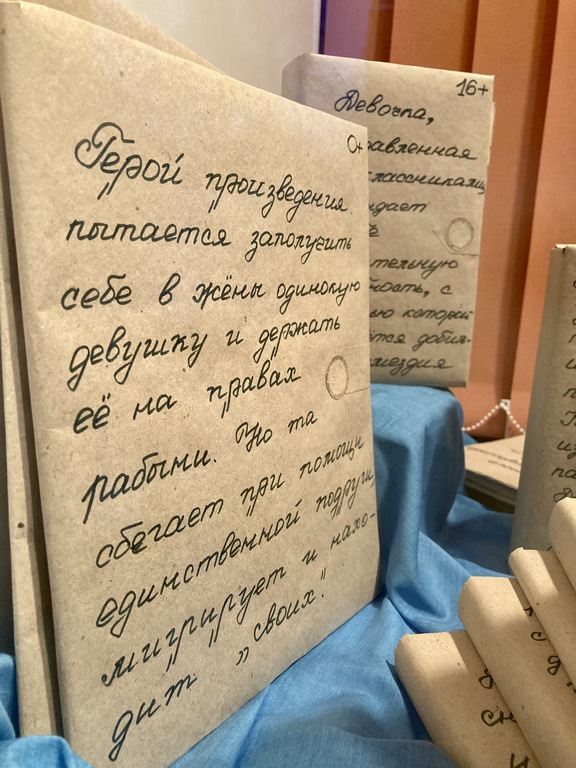 0+
Герой произведения
пытается заполучить
себе в жёны одинокую
девушку и держать
её на правах
рабыни. Но та
сбегает при помощи
единственной подруги,
мигрирует и нахо-
дит „своих".
16+
Девочка,
авленная
лассниками,
дает
тельную
ность, с
ю которой
ётся добив-
мездия